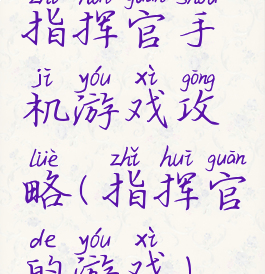 zhǐ huī guān shǒu
指挥官手
jī yóu xì gōng
机游戏攻
lüè zhǐ huī guān
略(指挥官
de yóu xì
的游戏)